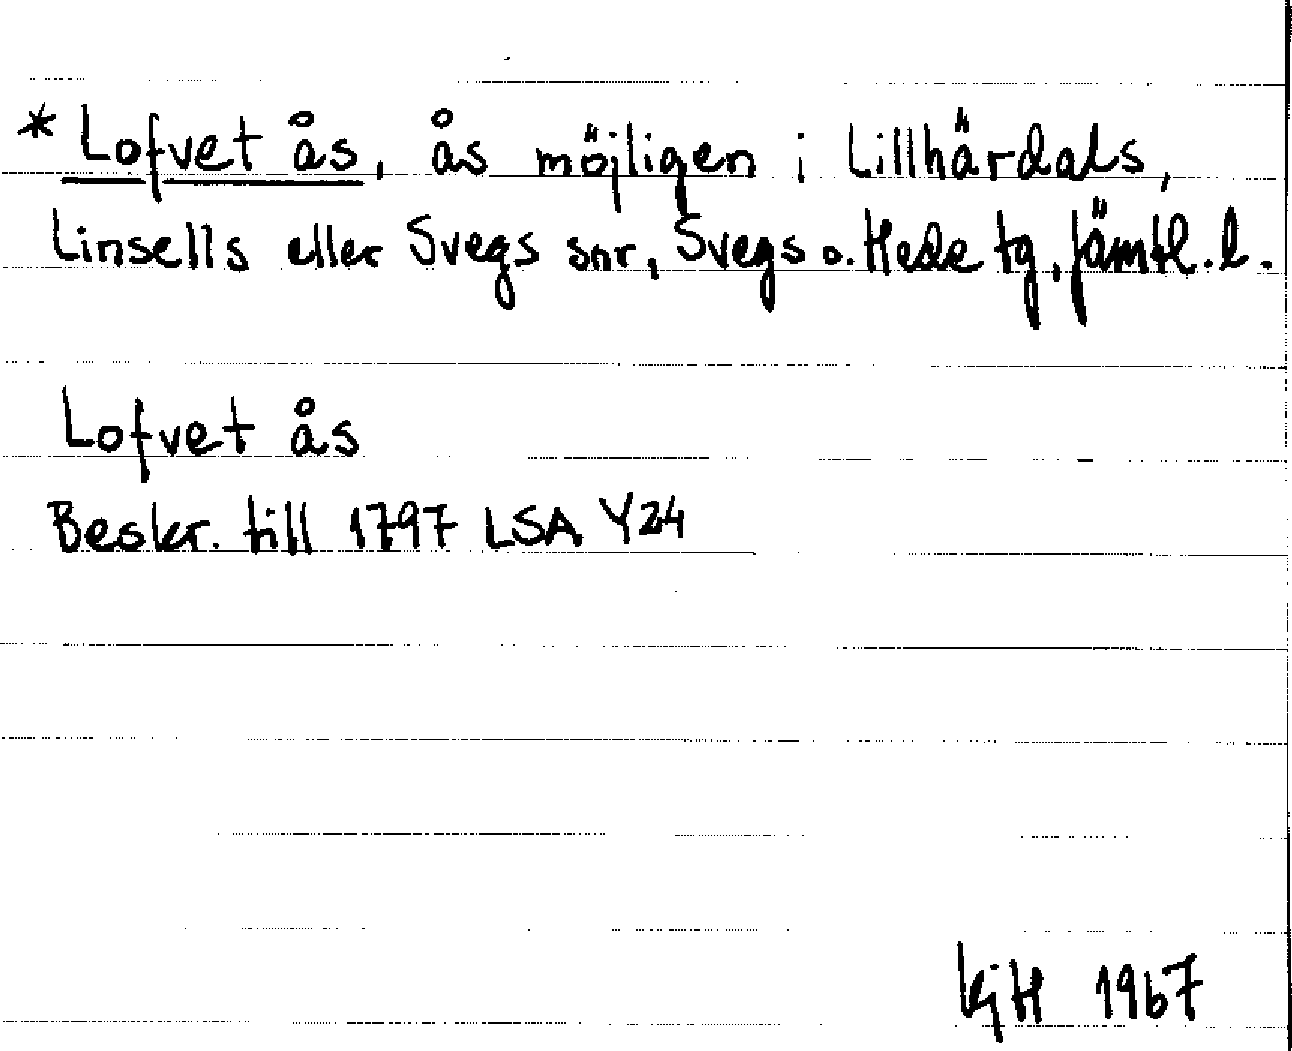 * Lofvet ås, ås möjligen i Lillhärdals,
Linsells eller Svegs snr, Svegs o. Hede tg, Jämtl. l.
Lofvet ås
Beskr. till 1797 LSA Y24
KjH 1967